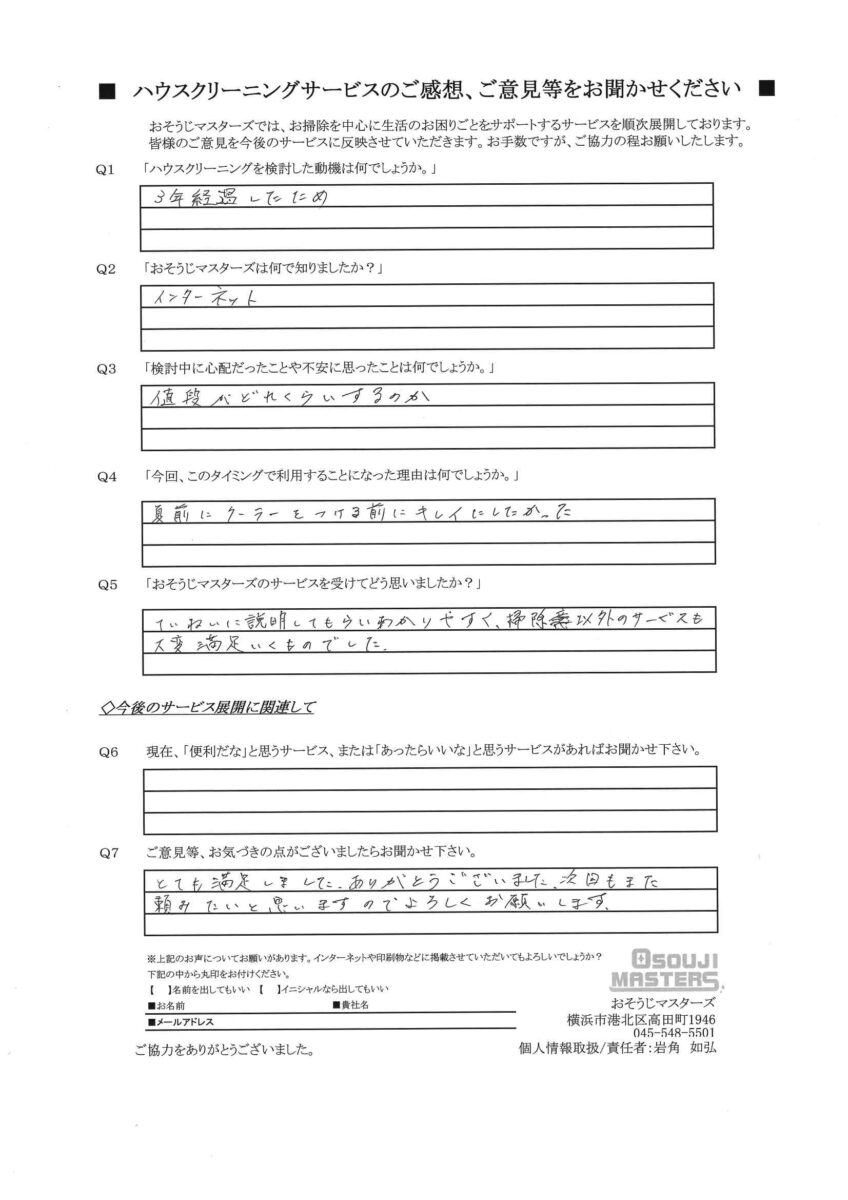 ■ ハウスクリーニングサービスのご感想、ご意見等をお聞かせください ■
おそうじマスターズでは、お掃除を中心に生活のお困りごとをサポートするサービスを順次展開しております。
皆様のご意見を今後のサービスに反映させていただきます。お手数ですが、ご協力の程お願いしたします。
Q1 「ハウスクリーニングを検討した動機は何でしょうか。」
3年経過したため
Q2 「おそうじマスターズは何で知りましたか？」
インターネット
Q3 「検討中に心配だったことや不安に思ったことは何でしょうか。」
値段がどれくらいするのか
Q4 「今回、このタイミングで利用することになった理由は何でしょうか。」
夏前にクーラーをつける前にキレイにしたかった
Q5 「おそうじマスターズのサービスを受けてどう思いましたか？」
ていねいに説明してもらいわかりやすく、掃除以外のサービスも
大変満足いくものでした。
◇今後のサービス展開に関連して
Q6 現在、「便利だな」と思うサービス、または「あったらいいな」と思うサービスがあればお聞かせ下さい。
Q7 ご意見等、お気づきの点がございましたらお聞かせ下さい。
とても満足しました。ありがとうございました。次回もまた
頼みたいと思いますのでよろしくお願いします。
※上記のお声についてお願いがあります。インターネットや印刷物などに掲載させていただいてもよろしいでしょうか？
下記の中から丸印をお付けください。
【　】名前を出してもいい 【　】イニシャルなら出してもいい
■お名前 ■貴社名
■メールアドレス
ご協力をありがとうございました。
OSOUJI
MASTERS
おそうじマスターズ
横浜市港北区高田町1946
045-548-5501
個人情報取扱/責任者：岩角 如弘